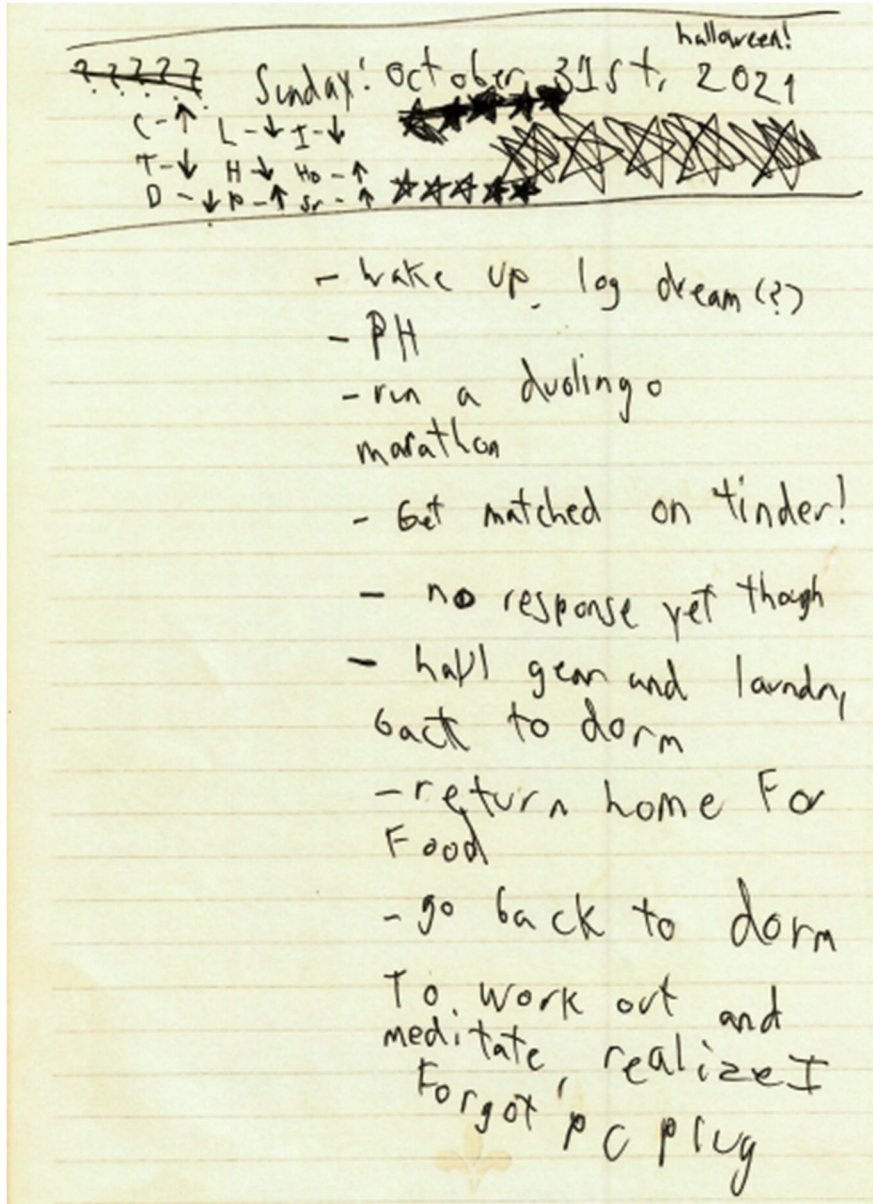 halloween!
? ? ? ? ? Sunday! October 31st, 2021
C-↑ L-↓ I-↓
T-↓ H↓ Ho-↑
D-↓ P-↑ Sr-↑
- wake up, log dream (?)
- PH
- run a duolingo
marathon
- Get matched on tinder!
- no response yet though
- haul gear and laundry
back to dorm
- return home For
Food
- go back to dorm
To work out and
meditate, realize I
Forgot PC plug